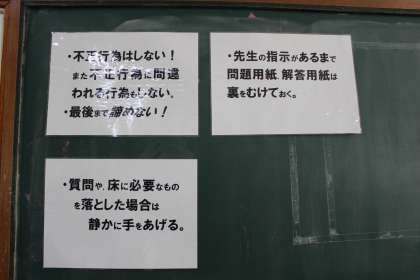 ・不正行為はしない！
また不正行為に間違
われる行為もしない。
・最後まで諦めない！
・先生の指示があるまで
問題用紙、解答用紙は
裏をむけておく。
・質問や、床に必要なもの
を落とした場合は
静かに手をあげる。